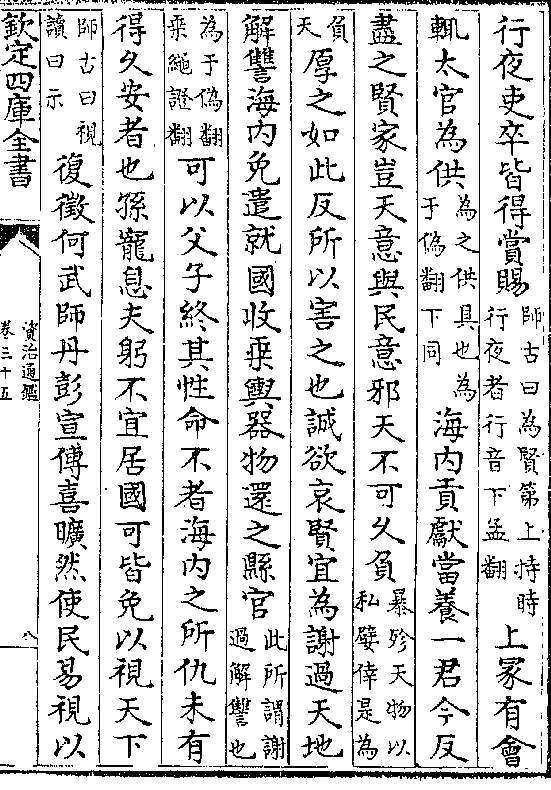 行夜吏卒皆得賞賜師古曰為賢第上持時行夜者行音下孟翻上冢有會
輒太官為供為之供具也為于偽翻下同海内貢獻當養一君今反
盡之賢家豈天意與民意邪天不可久負暴殄天物以私嬖倖是為
負天厚之如此反所以害之也誠欲哀賢宜為謝過天地
解讐海内免遣就國收乘輿器物還之縣官此所謂謝過解讐也
為于偽翻乘繩證翻可以父子終其性命不者海内之所仇未有
得久安者也孫寵息夫躬不宜居國可皆免以視天下
師古曰視讀曰示復徵何武師丹彭宣傅喜曠然使民易視以
欽定四庫全書
資治通鑑
卷三十五
八